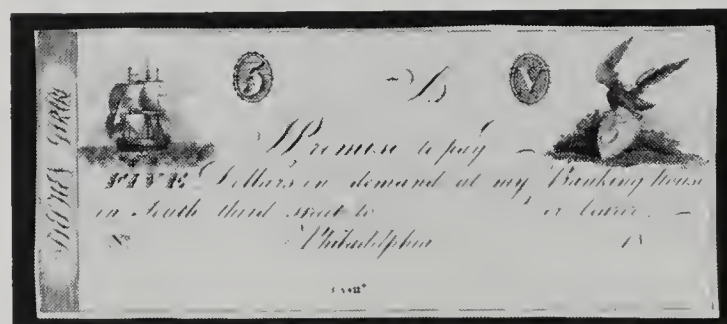 5 V
I Promise to pay
FIVE Dollars on demand at my Banking House
in South third street to or bearer.
No Philadelphia 18